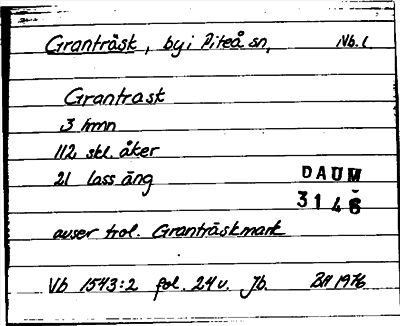 Granträsk, by i Piteå sn, Nb. l.
Grantrask
3 hmn
112 skl. åker
21 lass äng
DAUM
3148
avser trol. Granträskmark
Vb 1543:2 fol. 24v. Jb. BH 1976